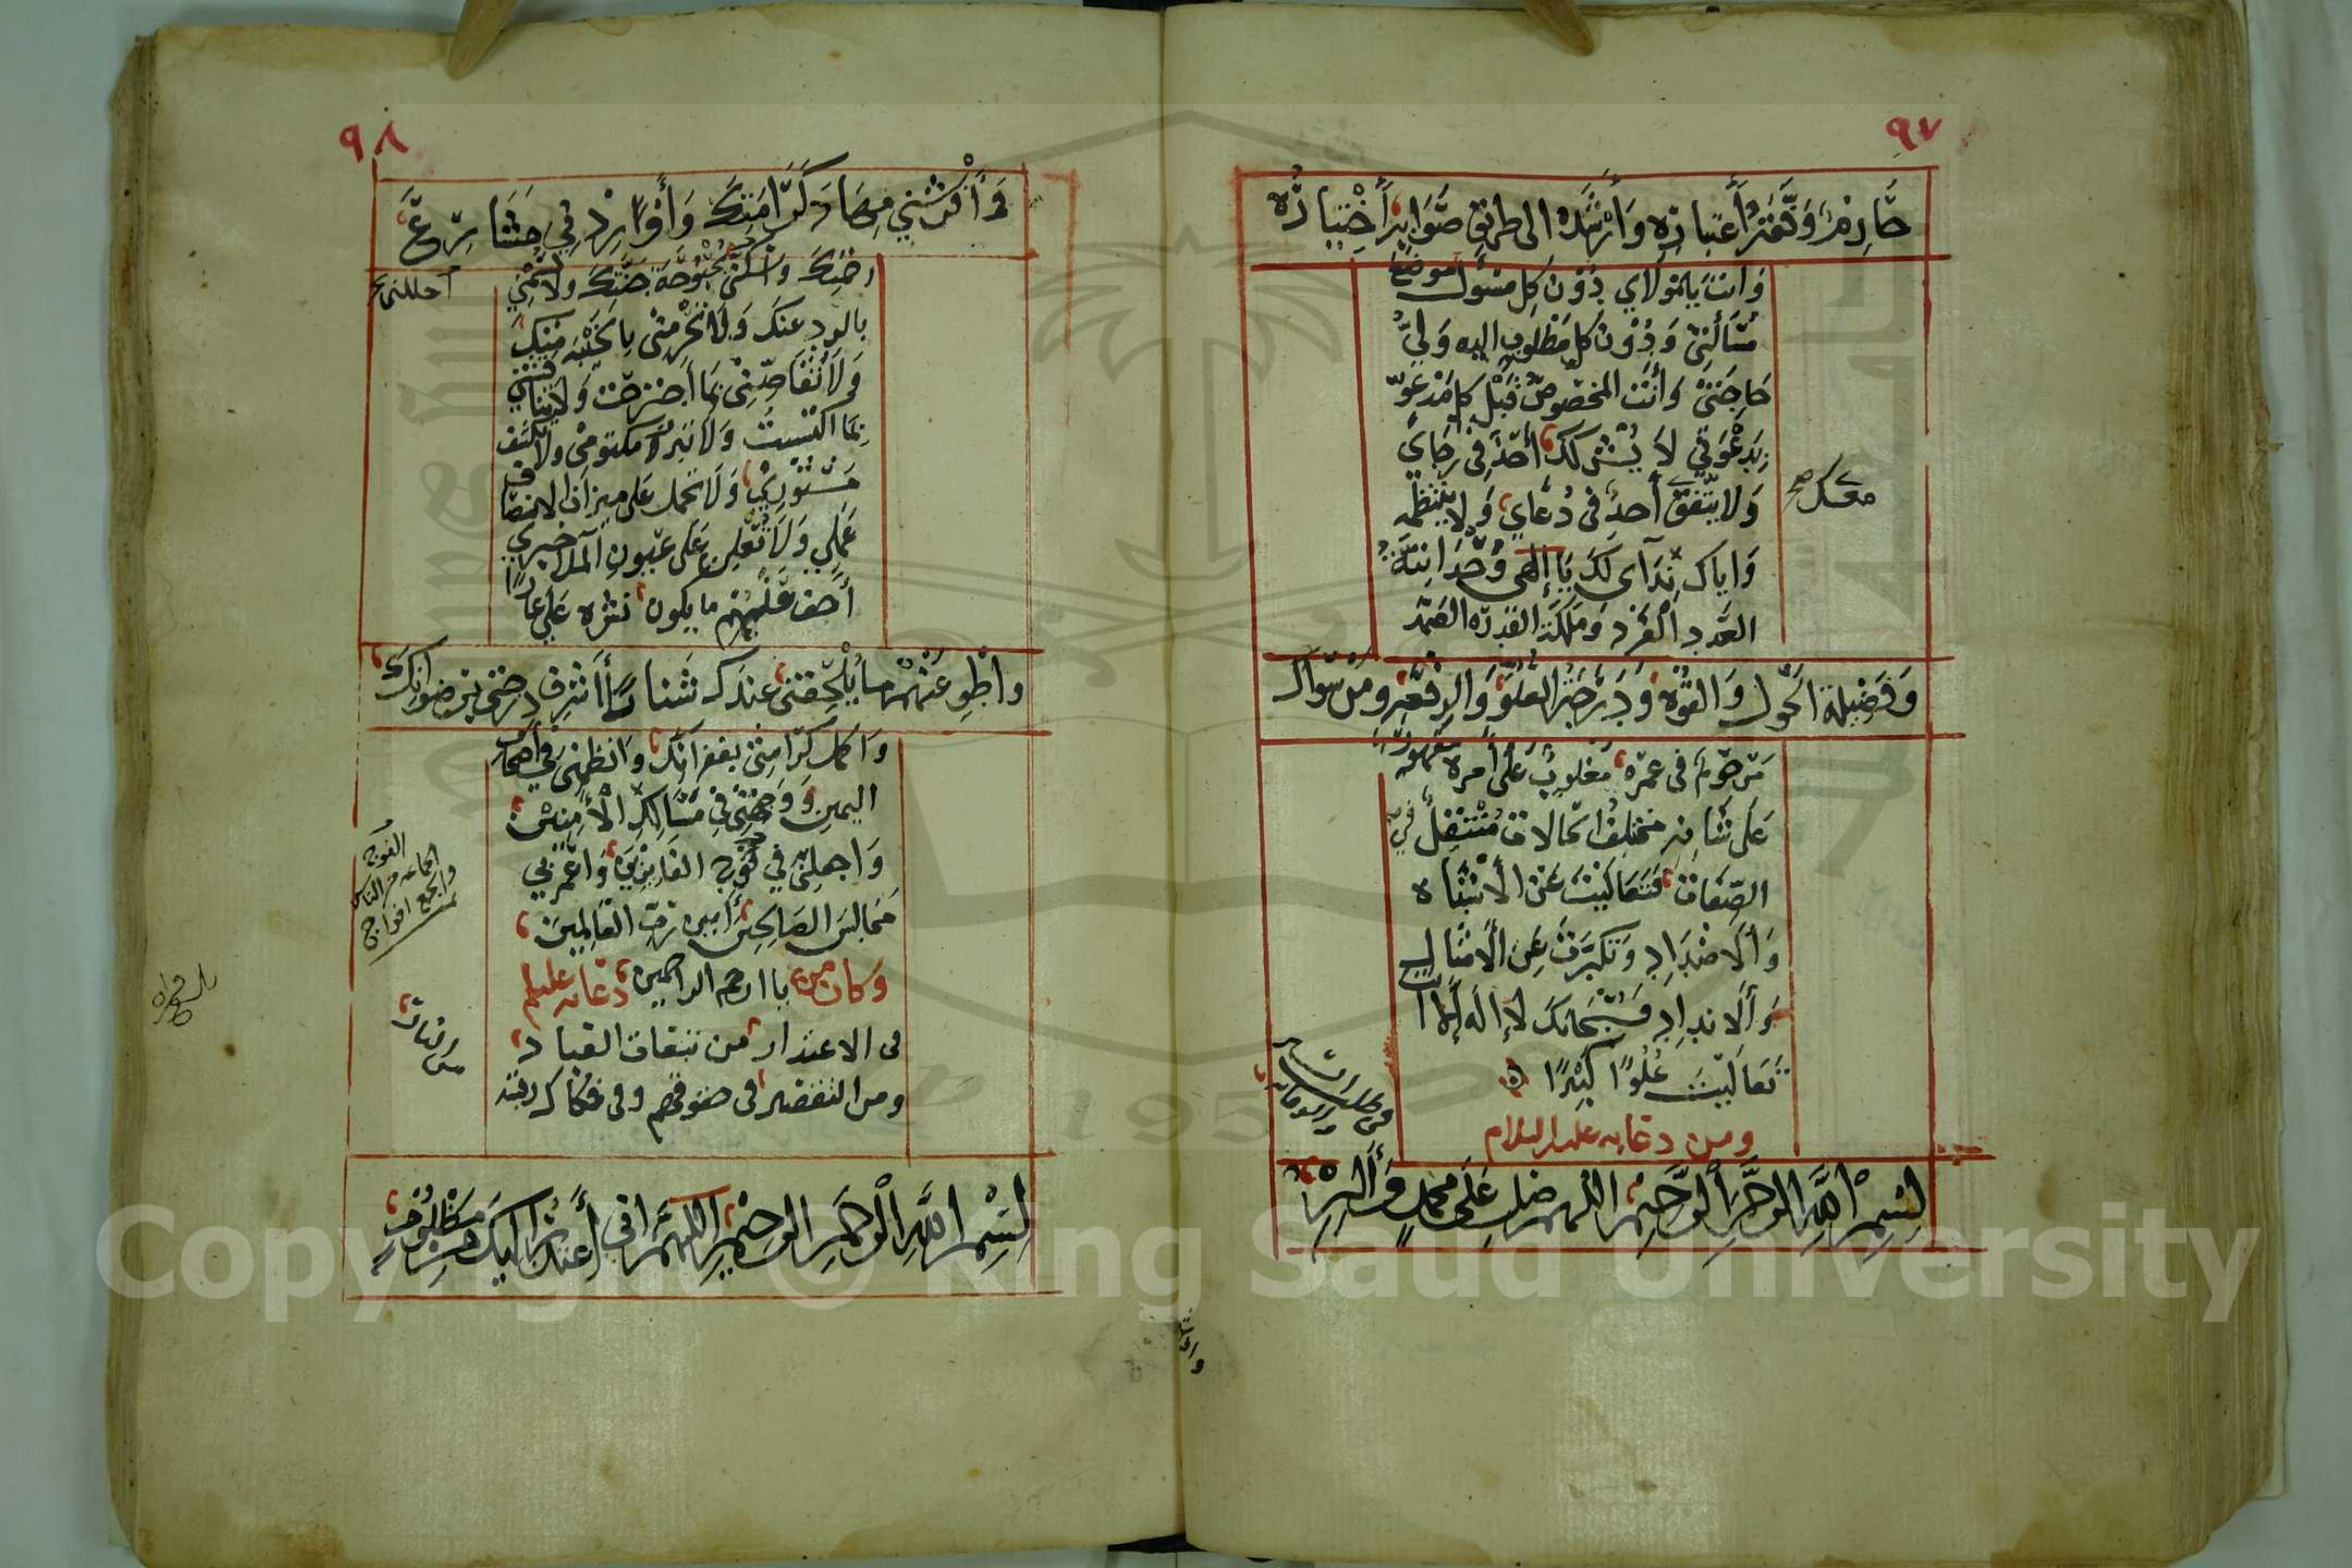 ٩٧
حَازِمٌ وَفَّقَهُ اعْتِبَارُهُ وَأَرْشَدَهُ الى طريق صَوَابِهِ اخْتِيَارُهُ
وَأَنْتَ يَا مَوْلَاي دُوْنَ كل مسْؤل موضع
مَسْأَلَتِي وَدُوْنَ كل مَطْلُوبٍ اليه وَلِيُّ
حَاجَتِي وَأَنْتَ المخصُوصُ قَبْلَ كل مَدْعُوٍّ
بِدَعْوَتِي لَا يُشْركك أَحَدٌ فِي رَجَايَ
معك صح
وَلَا يتفق أحدٌ فى دُعَاي وَلا ينتظمه
وَاياك نِدَآى لَكَ يَا إلهى وُحْدَانِيَّةُ
العَدد الْفَرْد وَمَلَكَةُ القدرة الصَّمَد
وَفَضِيلَة الْحَوْلِ وَالقُوَّةِ وَدَرَجَةُ العُلُوِّ وَالرِّفْعَةِ وَمَنْ سِوَاك
مَرْحُومٌ فى عمره مَغْلوبٌ عَلَى أَمره مقهورٌ
عَلَى شَانِهِ مختلفُ الحالات مُتَنَقِّلٌ فى
الصِّفَات فَتَعَالَيْتَ عَنْ الأشْبَاه
وَالأضْدَادِ وَتَكَبَّرْتَ عَنِ الأمْثَالِ
وَالأندادِ فَسُبْحَانَكَ لَا إِلَهَ إِلَّا أنت
تَعَالَيْتَ عُلُوًّا كَبِيْرًا
ومن دعايه عليه السلام
بِسْمِ اللَّهِ الرَّحْمَنِ الرَّحِيْمِ اللهم صَلِّ عَلَى مُحَمَّدٍ وَآلِهِ
٩٨
وَأَفْرِشْنِي مِهَادَ كَرَامَتِكَ وَأَوْرِدْنِي مَشَارِعَ
رحمتك وَاسْكُنِّي بُحْبُوْحَةَ جَنَّتِكَ وَلَا تَسُمْنِي
أحللنى
بالرد عنك وَلَا تَحْرِمْنِى بِالخَيْبَةِ مِنْكَ
وَلَا تُقَاصَّنِي بِمَا اجْتَرَحْت وَلَا تناقشني
بِمَا اكتسبتُ وَلَا تبرز مكتومى ولا تكشف
مَسْتُوْرِي وَلَا تحمل عَلَى ميزان الانصاف
عَمَلِي وَلَا تُعْلِن عَلَى عيونِ الملأ خبري
أخف عَنْهُمْ ما يكون نشره عَلَيَّ عارًا
وَاطْوِ عَنْهُمْ ما يُلْحِقُنِي عِندَك شَنَارًا شرف درجتي برضوانك
وَاكمل كَرَامَتِي بغفرانك وانظمنى فِي أصحاب
اليمين وَوَجِّهْنِي فِي مَسَالِكِ الْآمِنِين
وَاجعلنى في فَوْجِ الفَايِزِيْنَ وَاعْمُرْ بي
الفوج
الجماعه من الناس
والجمع افواج
مَجَالِسَ الصَالِحِين آمين رَبّ العَالِمِين
وكان من يا ارحم الراحمين دعايه عليلم
فى الاعتذار من تبعات العباد
ومن التقصير فى حقوقهم وفى فكاك رقبته
بِسْمِ اللَّهِ الرَّحْمَنِ الرَّحِيْمِ اللهُمَّ إِنِّي أَعْتَذِرُ إِلَيْكَ مِنْ مَظْلُوْمٍ
Copyright © King Saud University